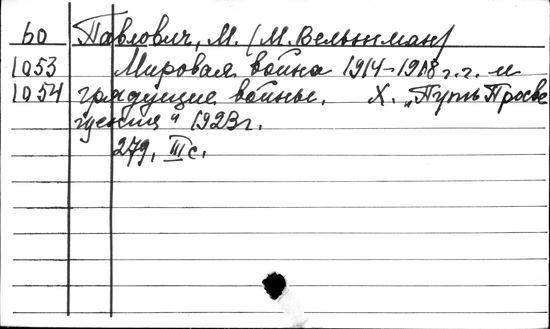 60 Павлович, М. (М. Вельтман)
1053 Мировая война 1914-1918 г.г. и
1054 грядущие войны. Х. „Путь Просве
щения“ 1923 г.
279, III с.